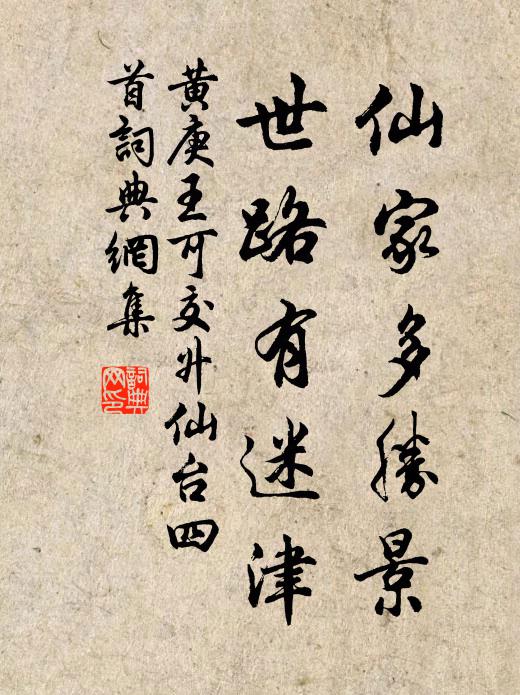 仙家多勝景
世路有迷津
黄庚王可交升仙台四
首詞典網集
詞典網印